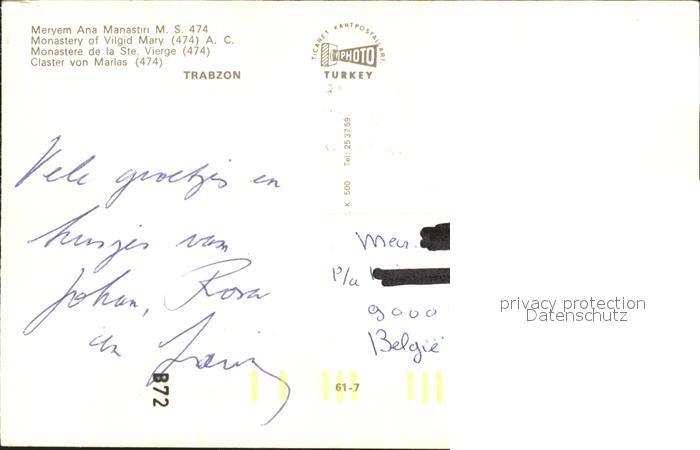 Meryem Ana Manastırı M. S. 474
Monastery of Vilgid Mary (474) A. C.
Monastere de la Ste. Vierge (474)
Claster von Marlas (474)
TRABZON
TICARET KARTPOSTAL
PHOTO
TURKEY
K 500 Tel: 25 37 59
Vele groetjes en
kusjes van
Johan, Rosa
en
Mevr.
P/a
9000
België
B72
61-7
privacy protection
Datenschutz